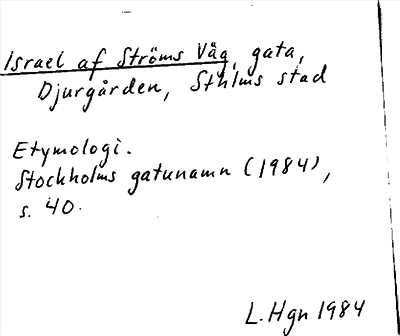 Israel af Ströms Väg, gata,
Djurgården, Sthlms stad
Etymologi.
Stockholms gatunamn (1984),
s. 40.
L. Hgn 1984